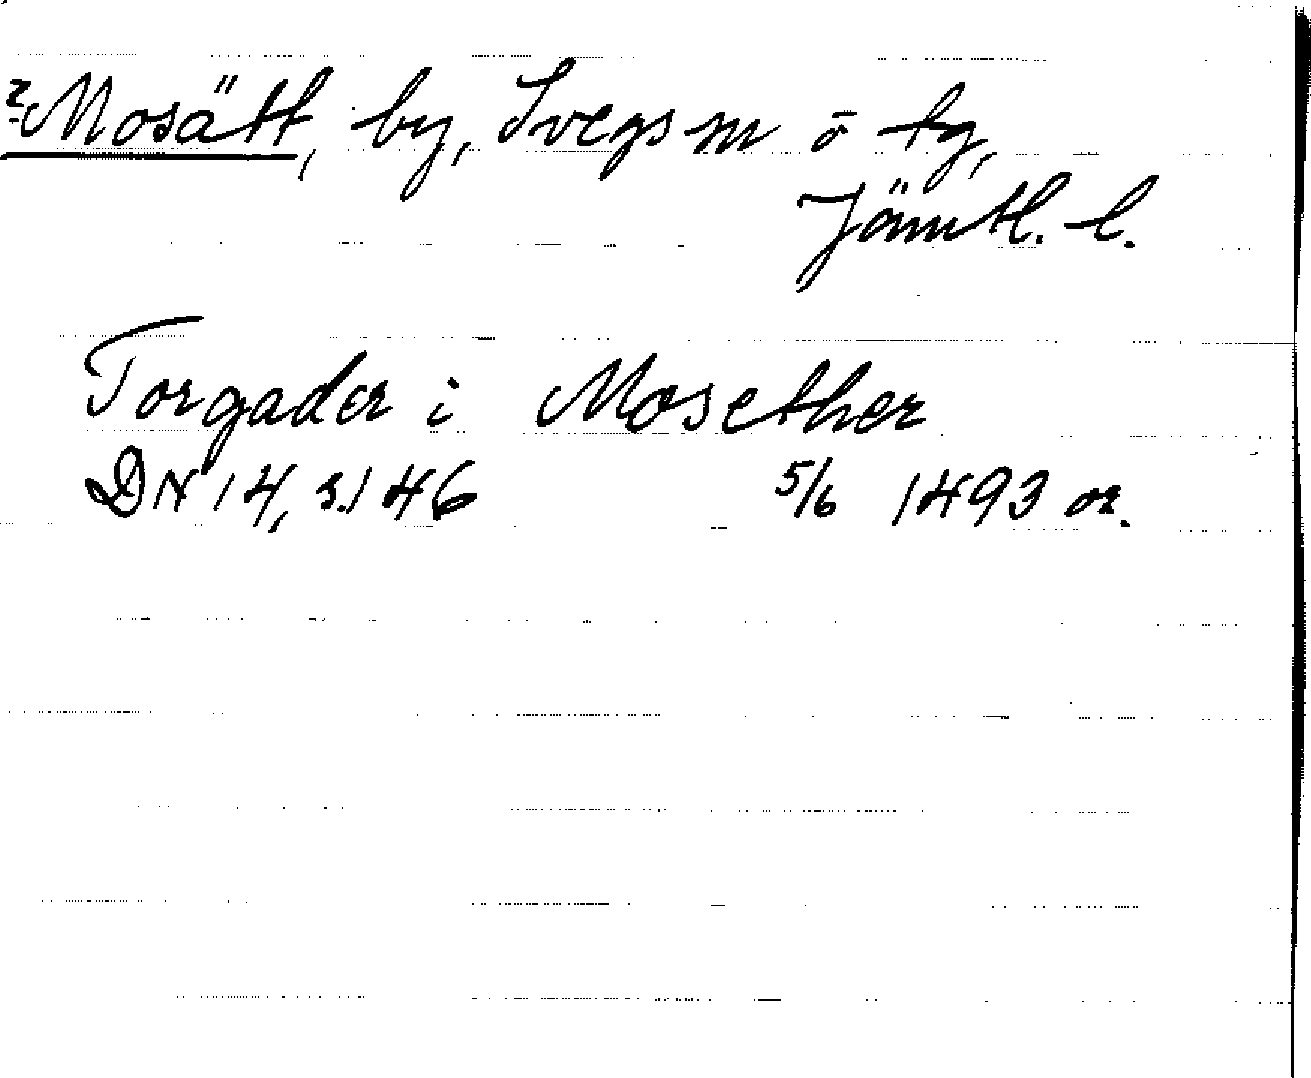 2 Mosätt, by, Svegs sn o tg,
Jämtl. l.
Torgader i Mosether
DN 14, s. 146 5/6 1493 or.